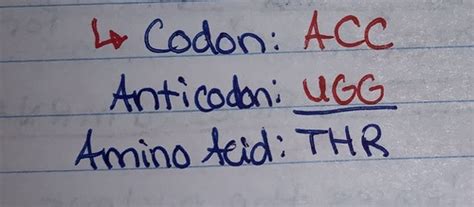 ↳ Codon: ACC
Anticodon: UGG
Amino Acid: THR